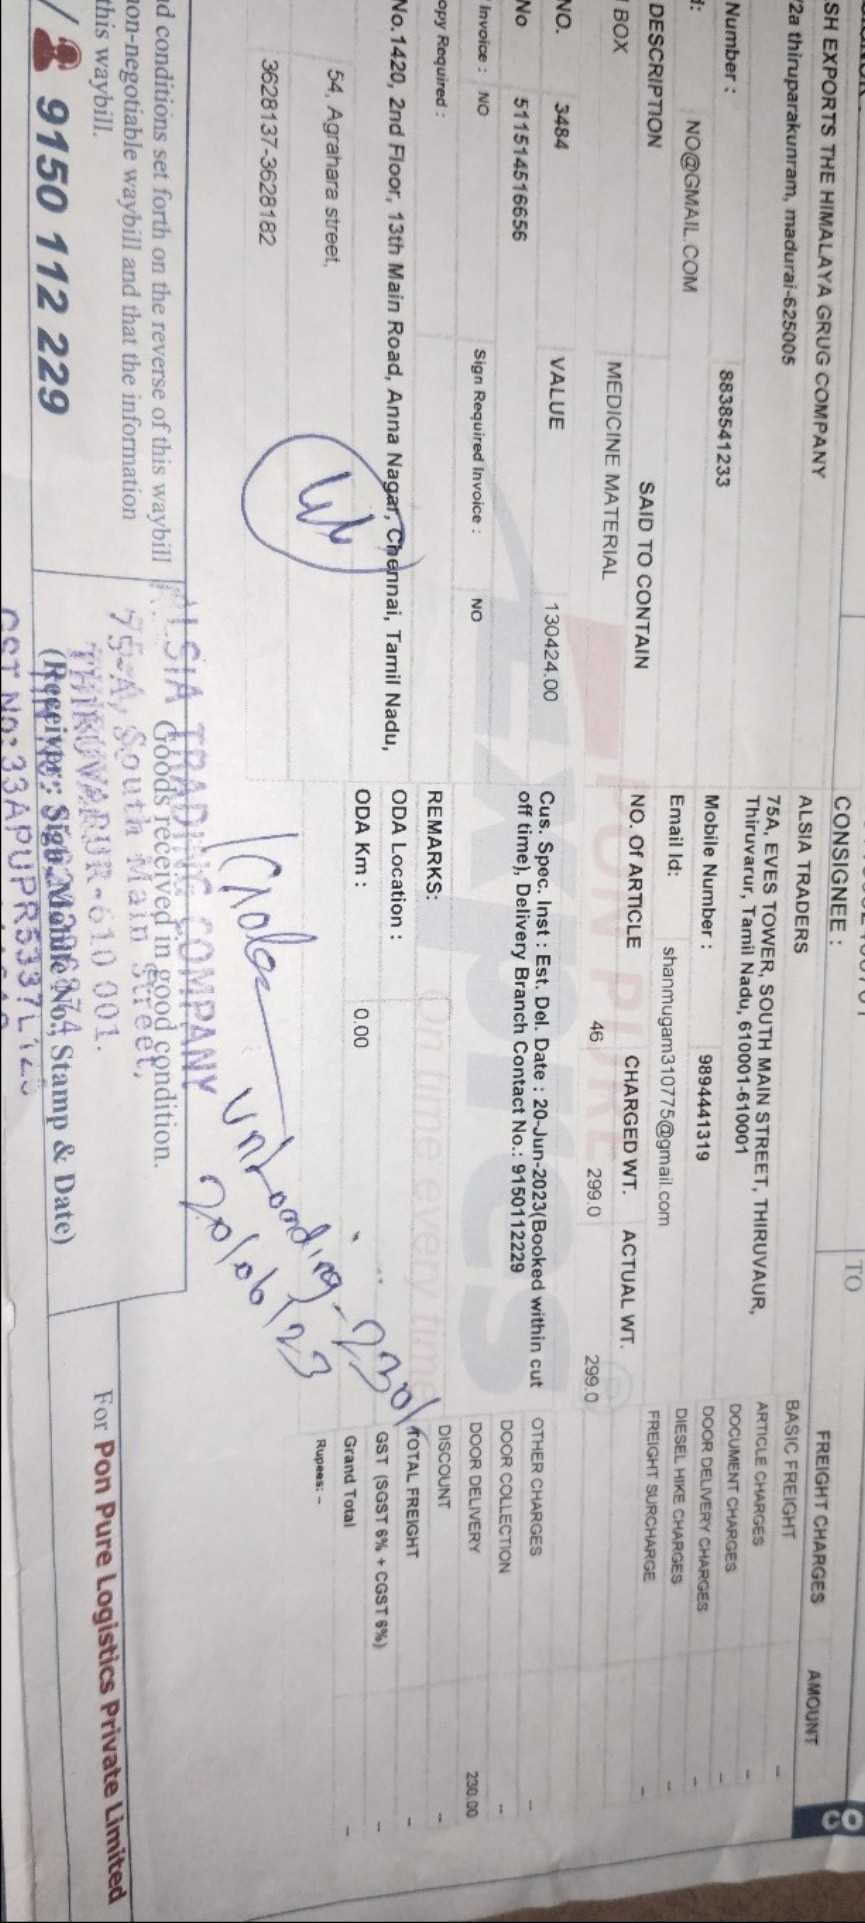 TO
SH EXPORTS THE HIMALAYA GRUG COMPANY
/2a thiruparakunram, madurai-625005
Number : 8838541233
d: NO@GMAIL.COM
DESCRIPTION SAID TO CONTAIN
BOX MEDICINE MATERIAL
NO. 3484 VALUE 130424.00
No 511514516656
Invoice : NO Sign Required Invoice : NO
opy Required :
No.1420, 2nd Floor, 13th Main Road, Anna Nagar, Chennai, Tamil Nadu,
54, Agrahara street,
3628137-3628182
CONSIGNEE :
ALSIA TRADERS
75A, EVES TOWER, SOUTH MAIN STREET, THIRUVAUR,
Thiruvarur, Tamil Nadu, 610001-610001
Mobile Number : 9894441319
Email Id: shanmugam310775@gmail.com
NO. Of ARTICLE CHARGED WT. ACTUAL WT.
46 299.0 299.0
Cus. Spec. Inst : Est. Del. Date : 20-Jun-2023(Booked within cut
off time), Delivery Branch Contact No.: 9150112229
REMARKS:
ODA Location :
ODA Km : 0.00
FREIGHT CHARGES AMOUNT
BASIC FREIGHT --
ARTICLE CHARGES --
DOCUMENT CHARGES --
DOOR DELIVERY CHARGES --
DIESEL HIKE CHARGES --
FREIGHT SURCHARGE --
OTHER CHARGES --
DOOR COLLECTION --
DOOR DELIVERY 230.00
DISCOUNT --
TOTAL FREIGHT --
GST (SGST 6% + CGST 6%) --
Grand Total --
Rupees: --
PON PURE
Express
On time every time
unloading - 230/
20/06/23
d conditions set forth on the reverse of this waybill
on-negotiable waybill and that the information
this waybill.
9150 112 229
ALSIA TRADING COMPANY
Goods received in good condition.
75-A, South Main Street,
THIRUVARUR-610 001.
(Receiver: Sign, Mobile No., Stamp & Date)
GST No: 33APUPR5337L
For Pon Pure Logistics Private Limited